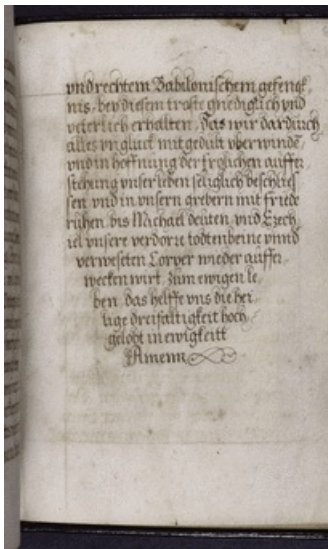 vnd rechtem Babilonischem gefengk-
nis, bey diesem troste gnediglich vnd
veterlich erhalten, Das wir dardurch
alles vngluck mit gedult vberwinde,
vnd in hoffnung der frolichen auffer-
stehung vnser leben seliglich beschlies
sen, vnd in vnsern grebern mit friede
ruhen, bis Michael deuten, vnd Ezech
iel vnsere verdorte todtenbeine vnnd
verweseten Corper wieder auffer-
wecken wirt, zum ewigen le-
ben, das helffe vns die hei-
lige dreifaltigkeit hoch-
gelobt in ewigkeitt
Amenn